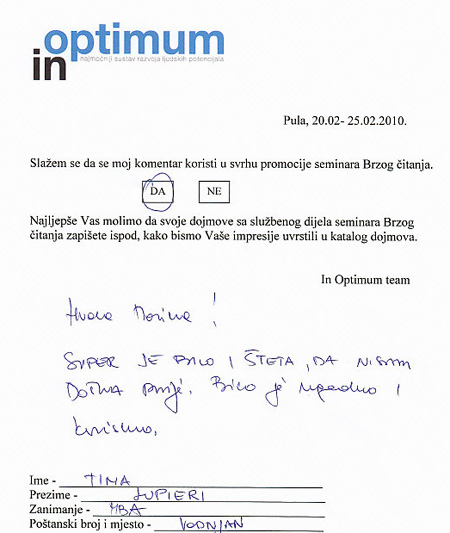 in optimum
najmoćniji sustav razvoja ljudskih potencijala
Pula, 20.02- 25.02.2010.
Slažem se da se moj komentar koristi u svrhu promocije seminara Brzog čitanja.
DA NE
Najljepše Vas molimo da svoje dojmove sa službenog dijela seminara Brzog
čitanja zapišete ispod, kako bismo Vaše impresije uvrstili u katalog dojmova.
In Optimum team
Hvala Dorina!
SUPER JE BILO I ŠTETA, DA NISAM
DOŠLA prije. Bilo je ugodno i
korisno.
Ime - TINA
Prezime - ŽUPIERI
Zanimanje - MBA
Poštanski broj i mjesto - VODNJAN